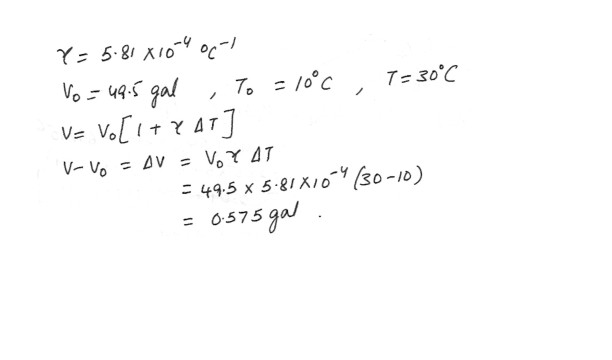 γ = 5.81 × 10⁻⁴ °C⁻¹
V₀ = 49.5 gal , T₀ = 10°C , T = 30°C
V = V₀[1 + γ ΔT]
V - V₀ = ΔV = V₀ γ ΔT
= 49.5 × 5.81 × 10⁻⁴ (30 - 10)
= 0.575 gal .